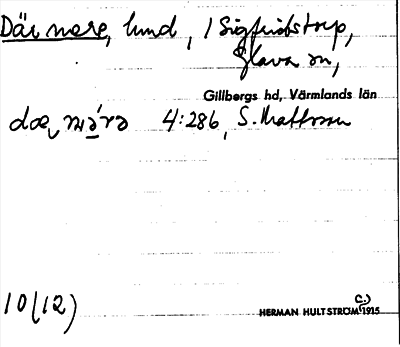 Där nere, lund, 1 Sigfridstorp,
Glava sn,
Gillbergs hd, Värmlands län
4:286, S. Mattsson
10(12)
HERMAN HULTSTRÖM(C.) 1915